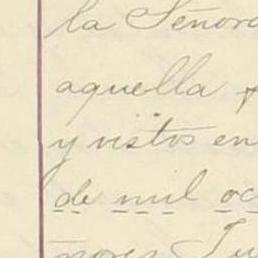 la Señora
aquella
y vistos en
de mil oc